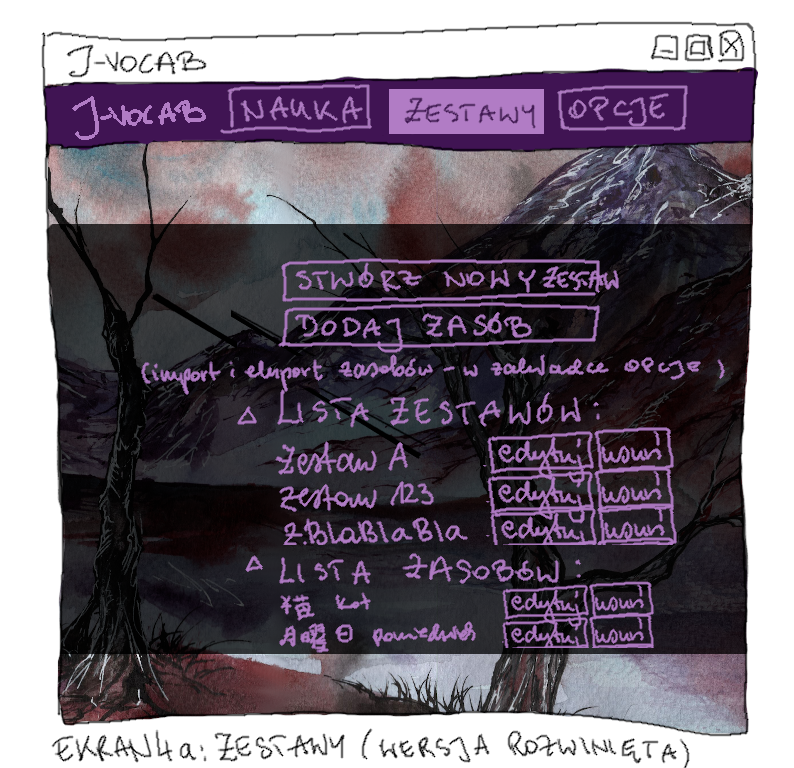 J-VOCAB
J-VOCAB NAUKA ZESTAWY OPCJE
STWÓRZ NOWY ZESTAW
DODAJ ZASÓB
(import i eksport zasobów - w zakładce OPCJE)
△ LISTA ZESTAWÓW:
Zestaw A edytuj usuń
Zestaw 123 edytuj usuń
Z.BlaBlaBla edytuj usuń
△ LISTA ZASOBÓW:
猫 kot edytuj usuń
月曜日 poniedziałek edytuj usuń
EKRAN 4a: ZESTAWY (WERSJA ROZWINIĘTA)